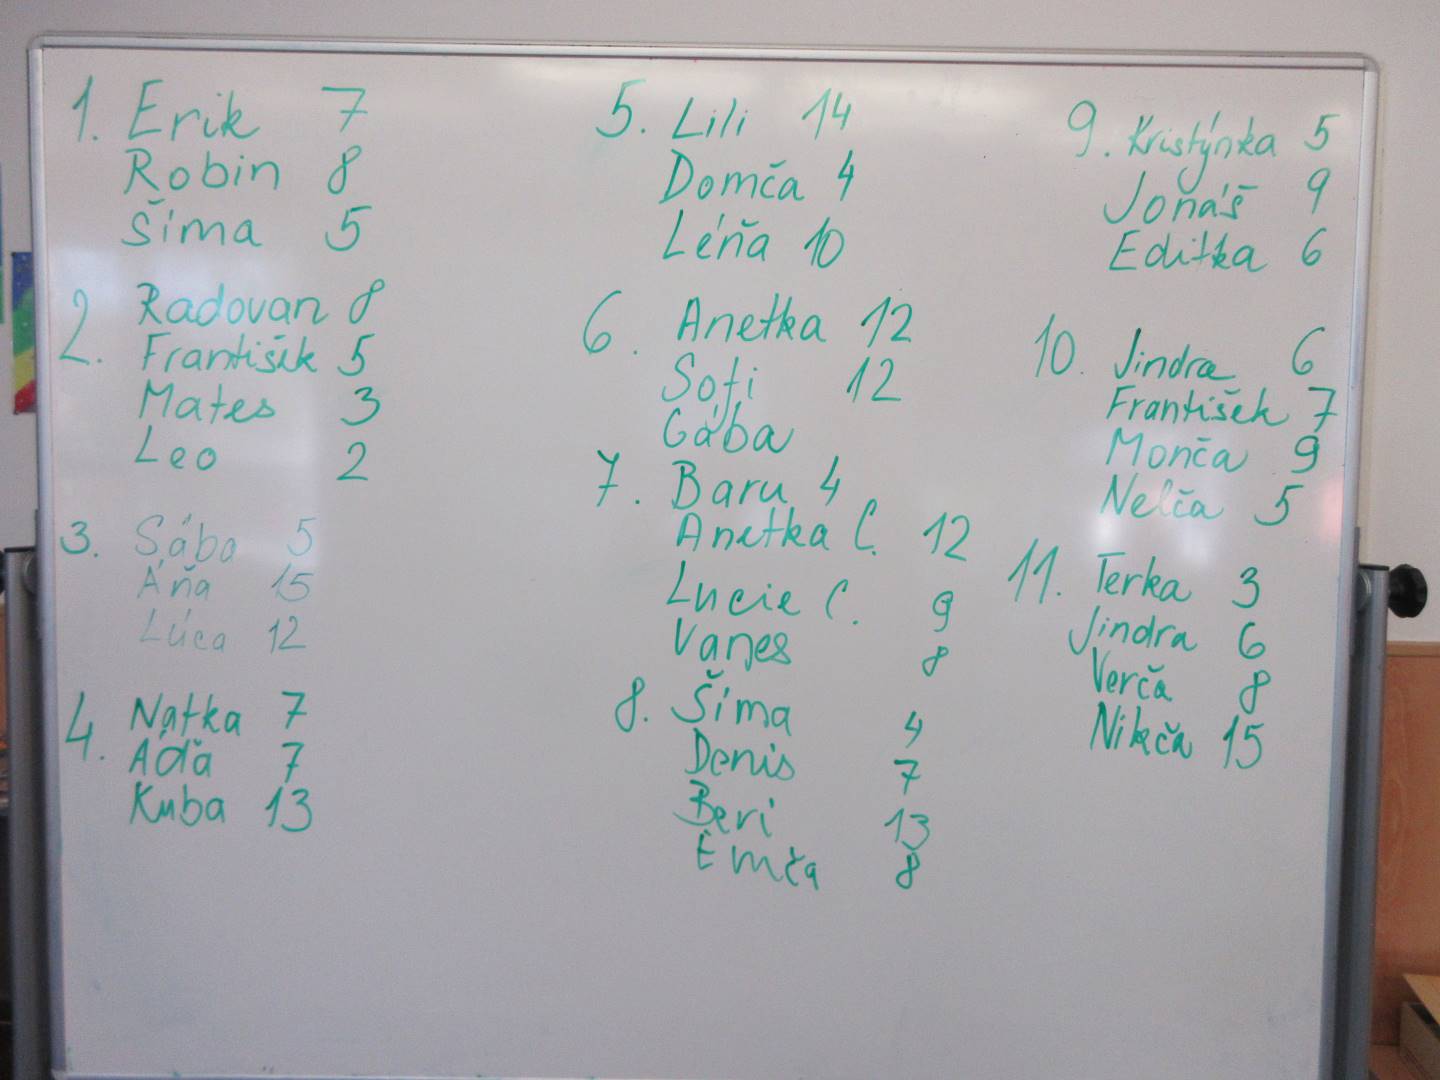 1. Erik 7
Robin 8
Šíma 5
2. Radovan 8
František 5
Mates 3
Leo 2
3. Sába 5
Áňa 15
Lúca 12
4. Naťka 7
Áďa 7
Kuba 13
5. Lili 14
Domča 4
Léňa 10
6. Anetka 12
Sofi 12
Gába
7. Baru 4
Anetka C. 12
Lucie C. 9
Vanes 8
8. Šíma 4
Denis 7
Beri 13
Emča 8
9. Kristýnka 5
Jonáš 9
Editka 6
10. Jindra 6
František 7
Monča 9
Nelča 5
11. Terka 3
Jindra 6
Verča 8
Nikča 15